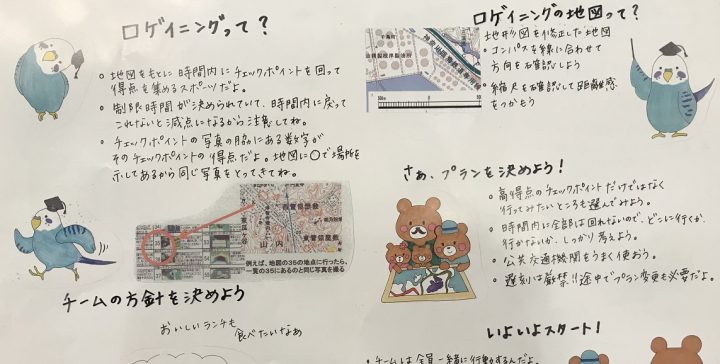 ロゲイニングって？
・地図をもとに時間内にチェックポイントを回って
得点を集めるスポーツだよ。
・制限時間が決められていて、時間内に戻って
これないと減点になるから注意してね。
・チェックポイントの写真の脇にある数字が
そのチェックポイントの得点だよ。地図に〇で場所を
示してあるから同じ写真をとってきてね。
山内
例えば、地図の35の地点に行ったら、
一覧の35にあるのと同じ写真を撮る
チームの方針を決めよう
おいしいランチも
食べたいなぁ
ロゲイニングの地図って？
地形図を修正した地図
・コンパスを線に合わせて
方向を確認しよう
・縮尺を確認して距離感
をつかもう
500m
0
50
さあ、プランを決めよう！
・高得点のチェックポイントだけではなく
行ってみたいところも選んでみよう。
・時間内に全部は回れないので、どこに行くか、
行かないか、しっかり考えよう。
・公共交通機関をうまく使おう。
・遅刻は厳禁！途中でプラン変更も必要だよ。
いよいよスタート！
・チームは全員一緒に行動するんだよ。